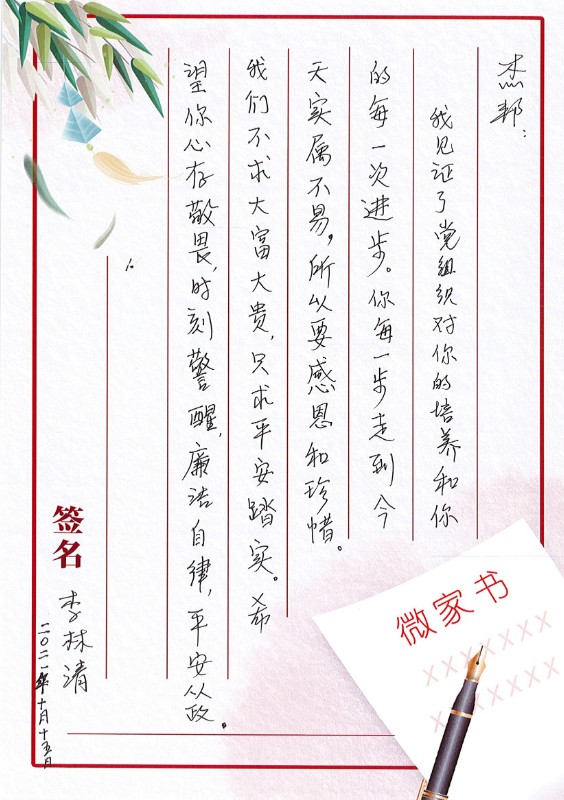 杰邦：
我见证了党组织对你的培养和你
的每一次进步。你每一步走到今
天实属不易，所以要感恩和珍惜。
我们不求大富大贵，只求平安踏实。希
望你心存敬畏，时刻警醒，廉洁自律，平安从政。
签名
李林清
二〇二一年十月十五日
微家书
XXXXXXX
XXXXXXX